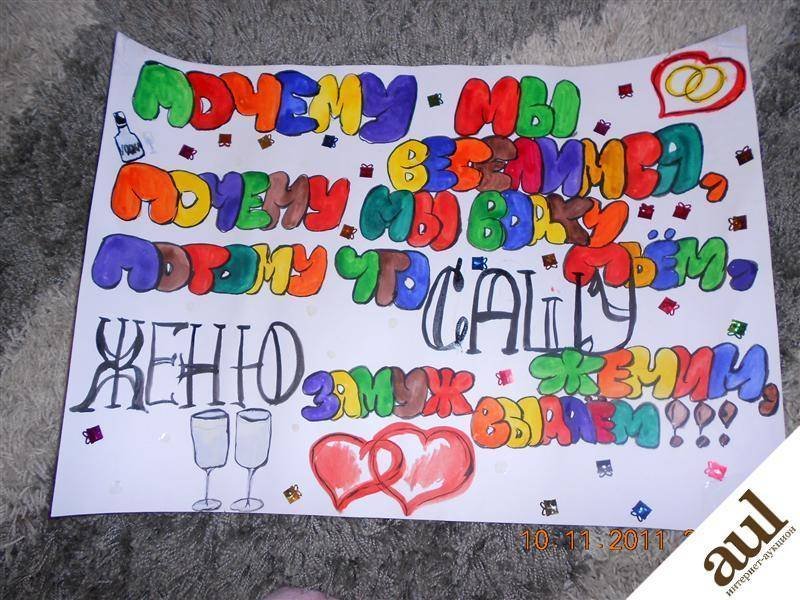 ПОЧЕМУ МЫ
ВЕСЕЛИМСЯ,
ПОЧЕМУ МЫ ВОДКУ
ПЬЁМ,
ПОТОМУ ЧТО САШУ
ЖЕНИМ,
ЖЕНЮ ЗАМУЖ
ВЫДАЁМ!!!
10.11.2011
aul
интернет-аукцион